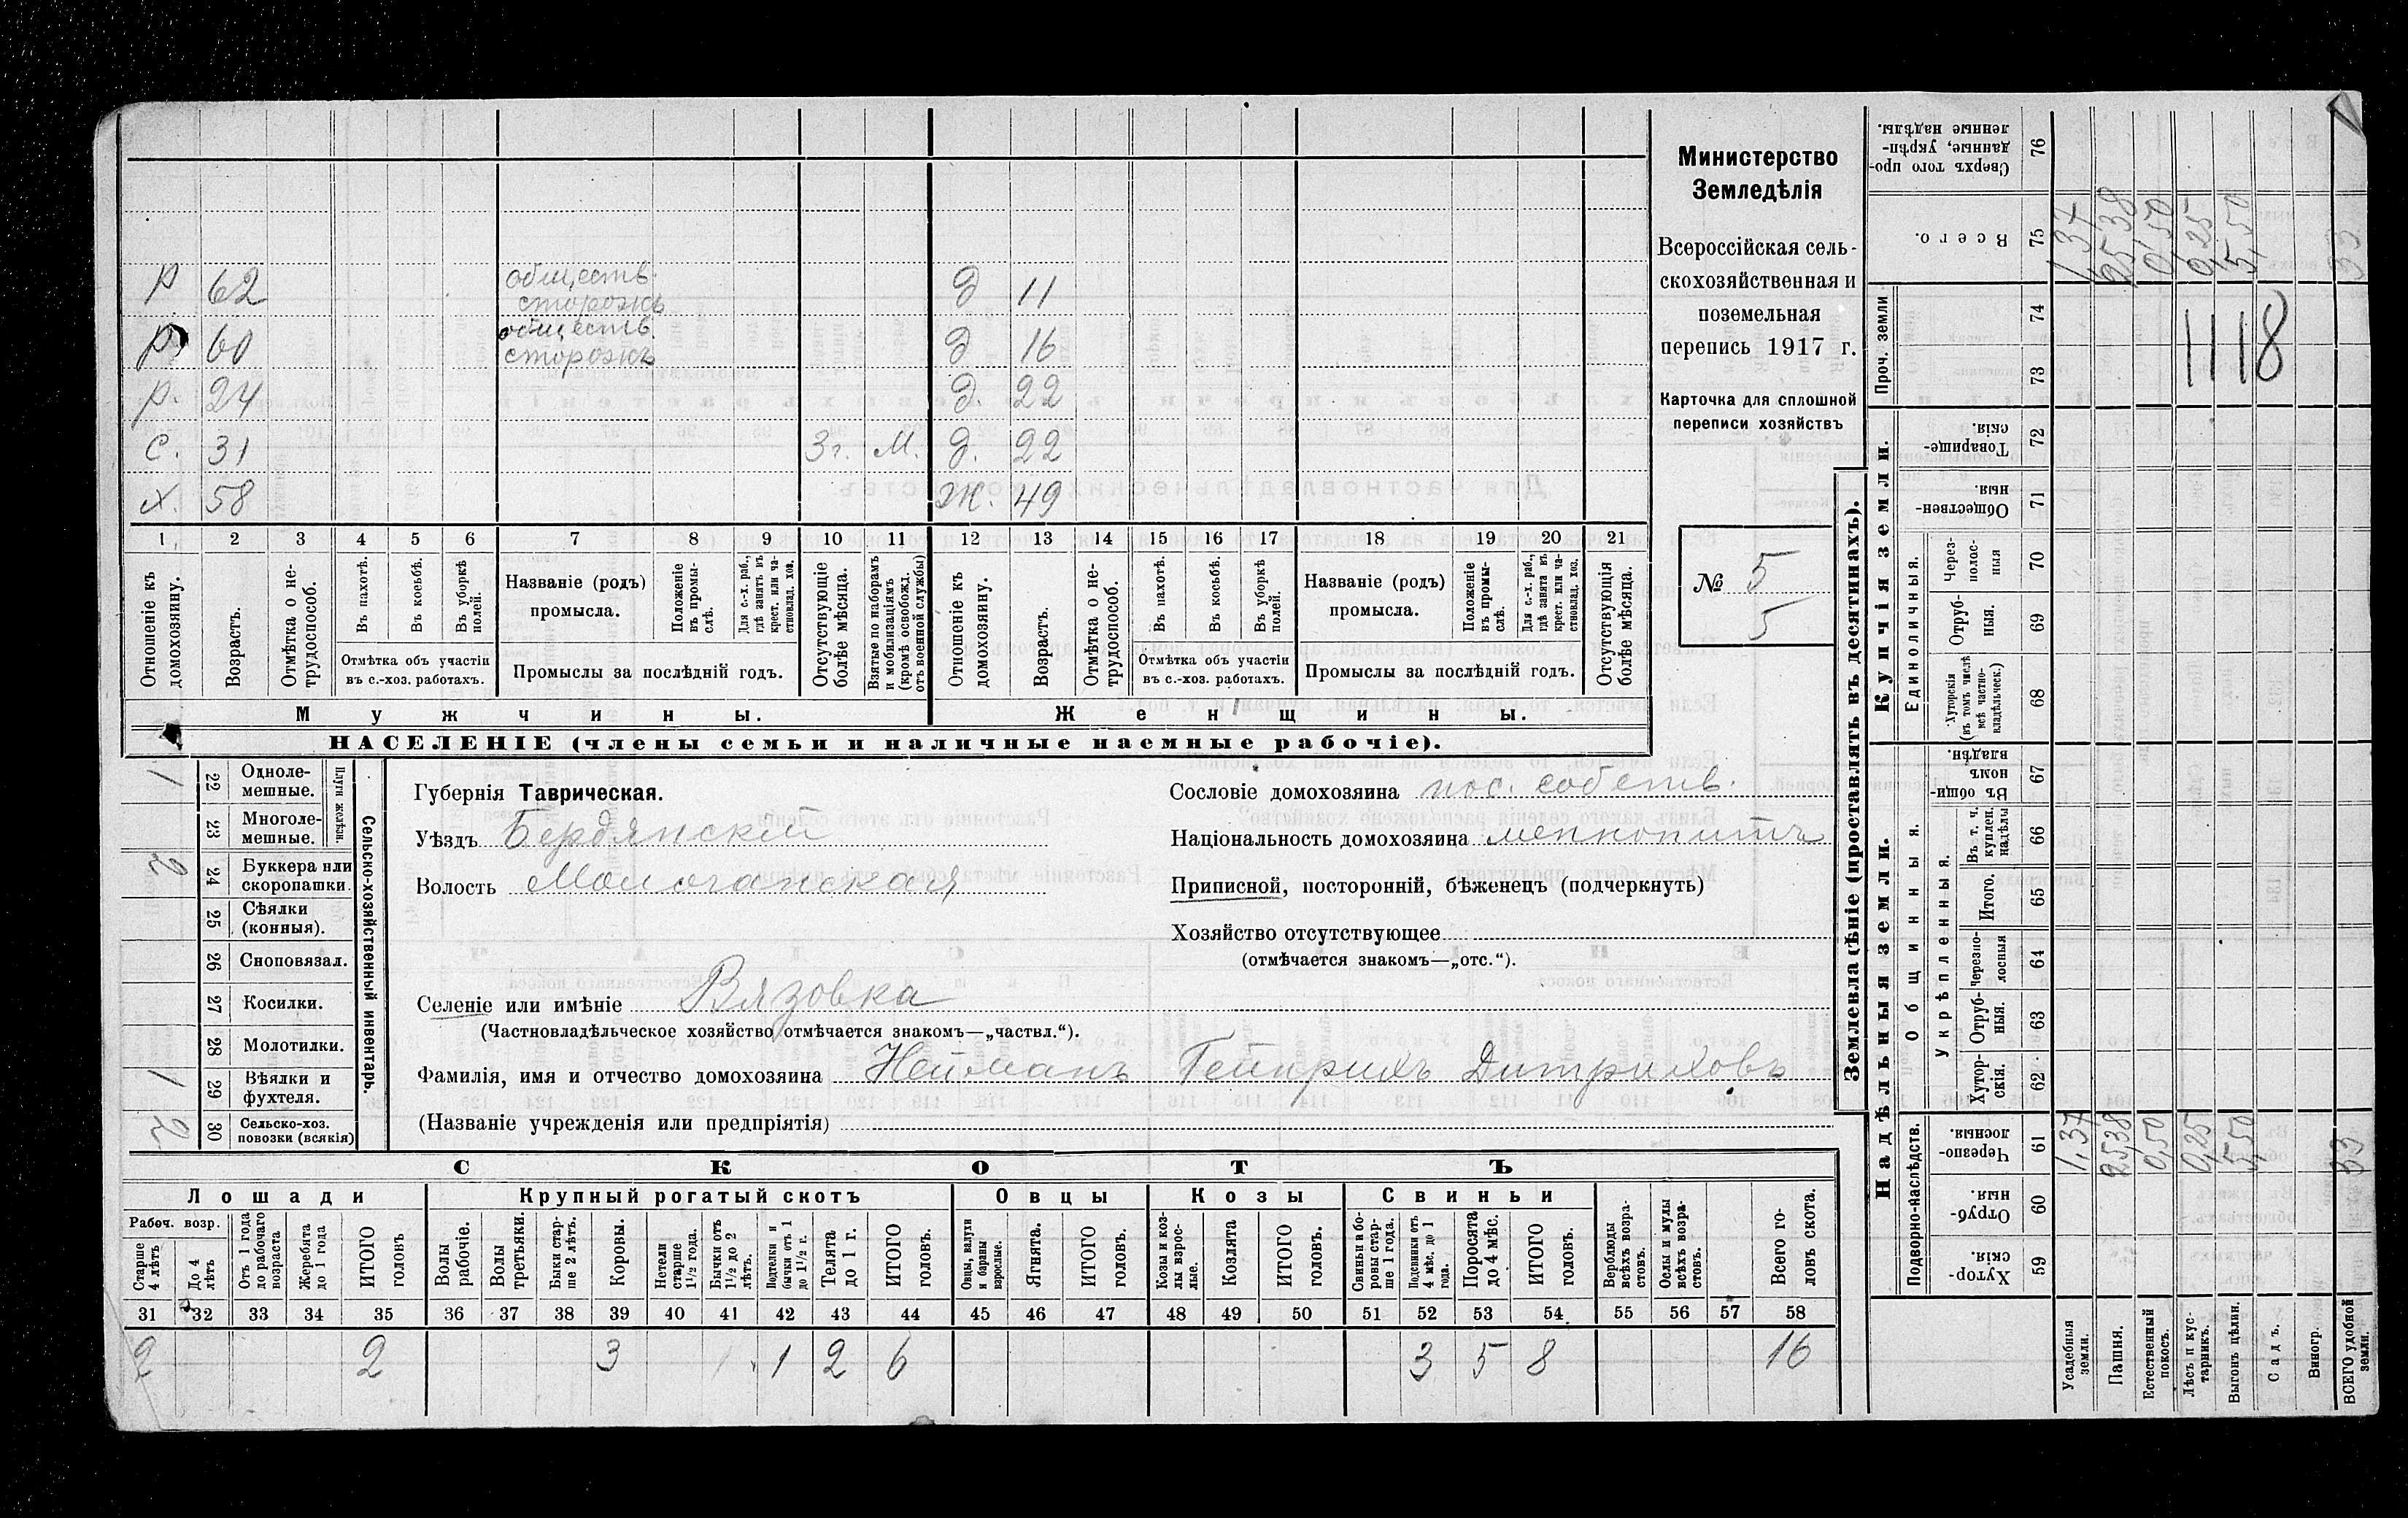 Министерство
Земледѣлія
Всероссійская сель-
скохозяйственная и
поземельная
перепись 1917 г.
Карточка для сплошной
переписи хозяйствъ
№ 5
5
Р 62 обществ. сторожъ Д 11
Р 60 обществ. сторожъ Д 16
Р. 24 Д. 22
С. 31 3г. М. Д. 22
Х. 58 Ж. 49
1 2 3 4 5 6 7 8 9 10 11 12 13 14 15 16 17 18 19 20 21
Отношеніе къ домохозяину.
Возрастъ.
Отмѣтка о не-трудоспособ.
Въ пахотѣ.
Въ косьбѣ.
Въ уборкѣ полей.
Отмѣтка объ участіи
въ с.-хоз. работахъ.
Названіе (родъ)
промысла.
Положеніе въ промы-слѣ.
Для с.-х. раб., гдѣ занятъ въ крест. или ча-стновлад. хоз.
Промыслы за послѣдній годъ.
Отсутствующіе болѣе мѣсяца.
Взятые по наборамъ и мобилизаціямъ (кромѣ освобожд. отъ военной службы)
Отношеніе къ домохозяину.
Возрастъ.
Отмѣтка о не-трудоспособ.
Въ пахотѣ.
Въ косьбѣ.
Въ уборкѣ полей.
Отмѣтка объ участіи
въ с.-хоз. работахъ.
Названіе (родъ)
промысла.
Положеніе въ промы-слѣ.
Для с.-х. раб., гдѣ занята въ крест. или ча-стновлад. хоз.
Промыслы за послѣдній годъ.
Отсутствующія болѣе мѣсяца.
Мужчины.
Женщины.
НАСЕЛЕНІЕ (члены семьи и наличные наемные рабочіе).
Сельско-хозяйственный инвентарь.
Плуги желѣзн.
1 22 Одноле-мешные.
23 Многоле-мешные.
2 24 Буккера или скоропашки.
25 Сѣялки (конныя).
26 Сноповязал.
27 Косилки.
28 Молотилки.
1 29 Вѣялки и фухтеля.
2 30 Сельско-хоз. повозки (всякія)
Губернія Таврическая.
Уѣздъ Бердянскій
Волость Молочанская
Сословіе домохозяина пос. собств.
Національность домохозяина меннонитъ
Приписной, посторонній, бѣженецъ (подчеркнуть)
Хозяйство отсутствующее
(отмѣчается знакомъ—„отс.“).
Селеніе или имѣніе Вязовка
(Частновладѣльческое хозяйство отмѣчается знакомъ—„частвл.“).
Фамилія, имя и отчество домохозяина Нейманъ Гейнрихъ Дитриховъ
(Названіе учрежденія или предпріятія)
СКОТЪ
Лошади
Крупный рогатый скотъ
Овцы
Козы
Свиньи
Рабоч. возр.
Старше 4 лѣтъ
До 4 лѣтъ
Отъ 1 года до рабочаго возраста
Жеребята до 1 года
ИТОГО головъ
Волы рабочіе.
Волы третьяки.
Быки стар-ше 2 лѣтъ.
Коровы.
Нетели старше 1½ года.
Бычки отъ 1½ до 2 лѣтъ.
Подтелки и бычки отъ 1 до 1½ г.
Телята до 1 г.
ИТОГО головъ.
Овцы, валухи и бараны взрослые.
Ягнята.
ИТОГО головъ.
Козы и коз-лы взрос-лые.
Козлята
ИТОГО головъ.
Свиньи и бо-ровы стар-ше 1 года.
Подсвинки отъ 4 мѣс. до 1 года.
Поросята до 4 мѣс.
ИТОГО головъ.
Верблюды всѣхъ возра-стовъ.
Ослы и мулы всѣхъ возра-стовъ.
Всего го-ловъ скота.
31 32 33 34 35 36 37 38 39 40 41 42 43 44 45 46 47 48 49 50 51 52 53 54 55 56 57 58
2 2 3 1 2 6 3 5 8 16
Землевладѣніе (проставлять въ десятинахъ).
Надѣльныя земли.
Купчія земли.
Проч. земли
Сверхъ того про-данные, укрѣп-ленные надѣлы. 76
Всего. 75
1,37
25,38
0,50
0,25
5,50
33
74
73
1118
Товарище-скія. 72
Обществен-ныя. 71
Единоличныя.
Через-полос-ныя 70
Отруб-ныя. 69
Хуторскія (въ томъ числѣ всѣ частно-владѣльческ.) 68
Общинныя.
Въ общи-номъ владѣн. 67
Укрѣпленныя.
Въ т. ч. куплен. надѣлы 66
Итого. 65
Черезпо-лосныя 64
Отруб-ныя. 63
Хутор-скія. 62
Подворно-наслѣдств.
Черезпо-лосныя. 61
1,37
25,38
0,50
0,25
5,50
33
Отруб-ныя. 60
Хутор-скія. 59
Усадебныя земли.
Пашня.
Естественный покосъ.
Лѣсъ и кус-тарникъ.
Выгонъ цѣлин.
Садъ.
Виногр.
ВСЕГО удобной земли.